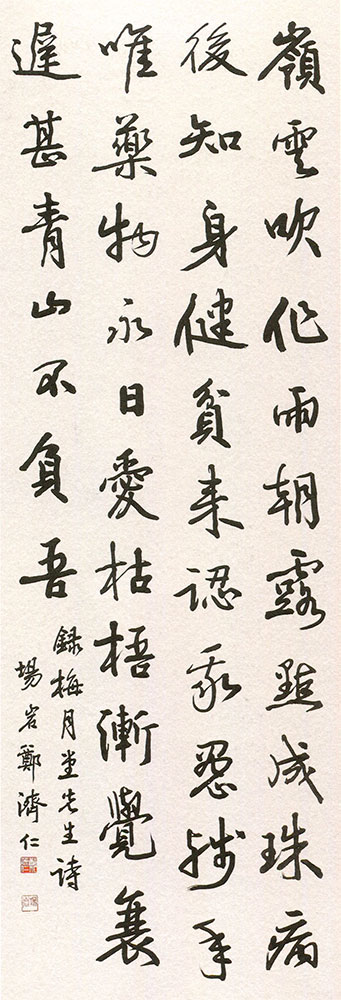 嶺雲吹作雨朝露點成珠病
後知身健貧来認我愚殘年
唯藥物永日愛枯梧漸覺衰
遲甚青山不負吾
録梅月堂先生詩
場岩鄭濟仁